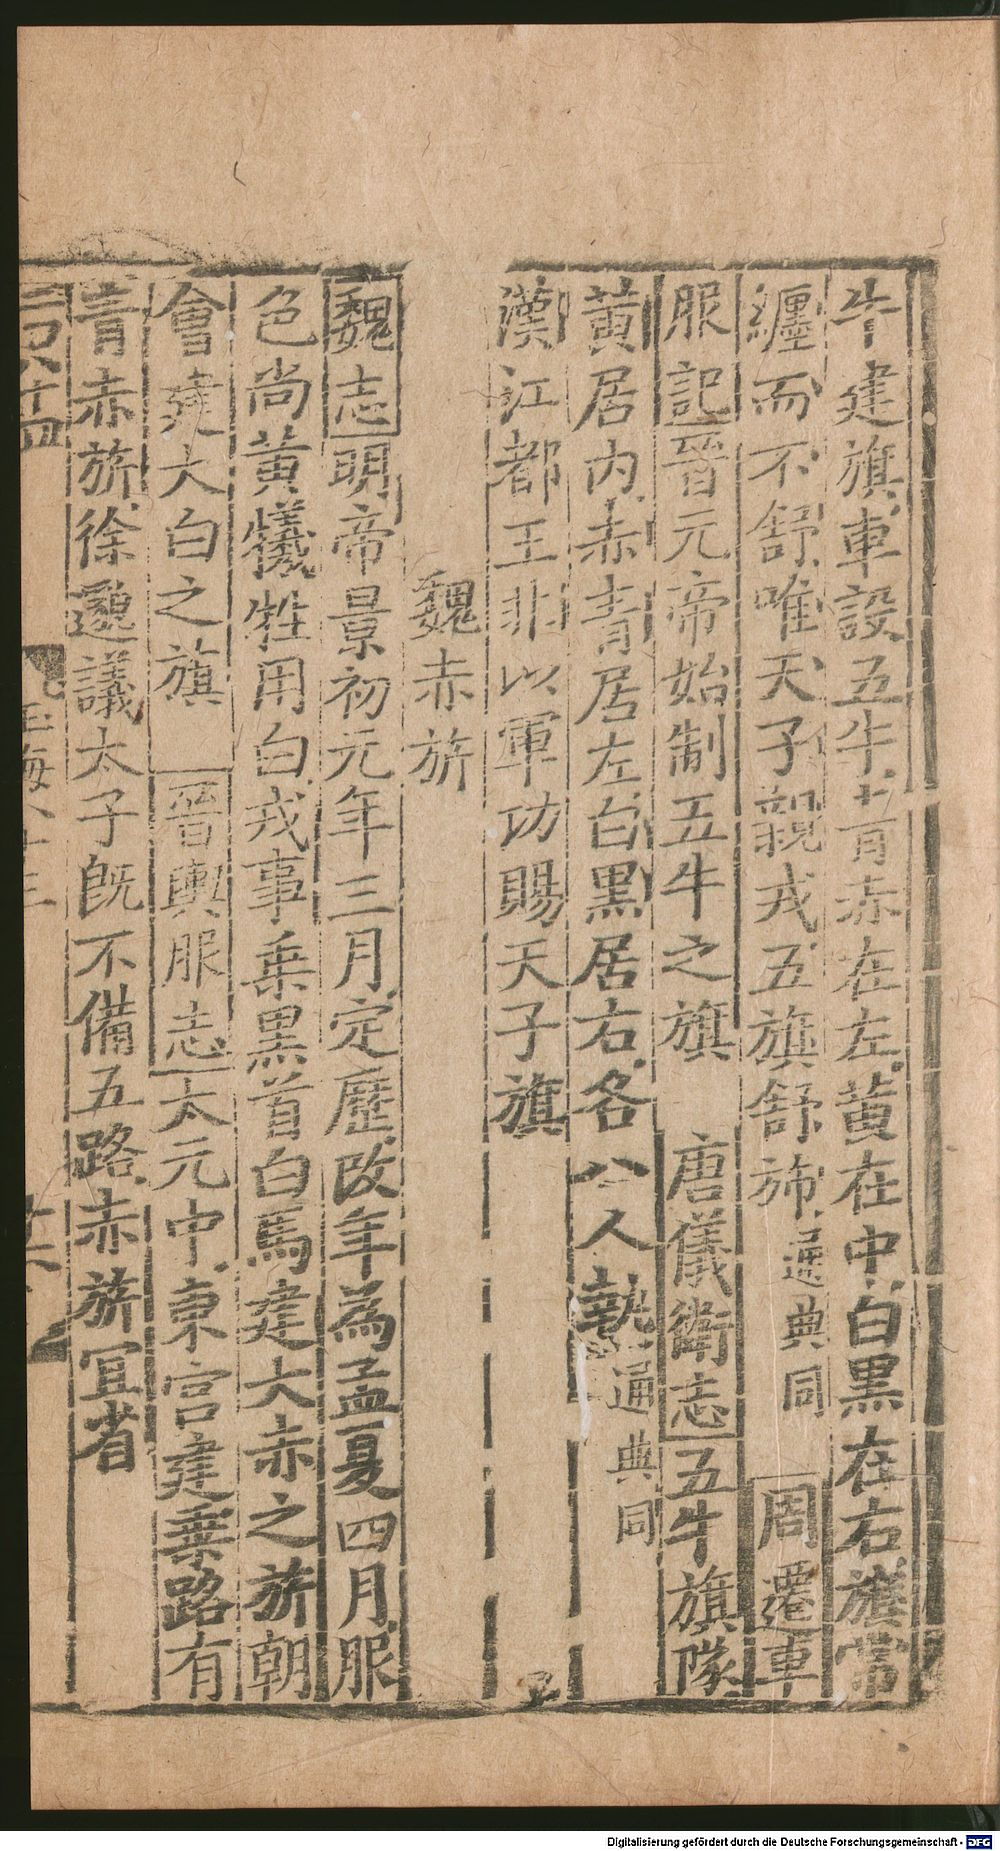 牛建旗車設五牛青赤在左黄在中白黒在右旗常
纒而不舒唯天子親戎五旗舒斾通典同 周遷車
服記晉元帝始制五牛之旗 唐儀衛志五牛旗隊
黄居内赤青居左白黒居右各八人執通典同
漢江都王非以軍功賜天子旗
魏赤旂
魏志明帝景初元年三月定歷改年為孟夏四月服
色尚黄犧牲用白戎事乗黒首白馬建大赤之旂朝
會建大白之旗 晉輿服志太元中東宫建乗路有
青赤旂徐邈議太子旣不備五路赤旂宜省
玉海八十三
Digitalisierung gefördert durch die Deutsche Forschungsgemeinschaft - DFG